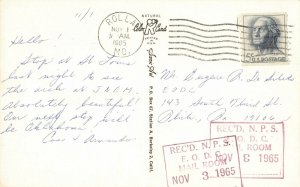 11/1
Hello!
Stop at St Louis
last night to see
the arch at J.N.E.M.
Absolutely beautiful!
Our next stop will
be Oklahoma
ROLLA
NOV 1
AM
1965
MO.
NATURAL
P.O. Box 67, Station A, Berkeley 2, Calif.
5¢ U.S. POSTAGE
Mr.
EODC
143 South Third St.
Phila, Pa 19106
REC'D. N.P.S.
E.O.D.C.
MAIL ROOM
NOV 3 1965
REC'D. N.P.S.
E.O.D.C.
MAIL ROOM
NOV 3 1965